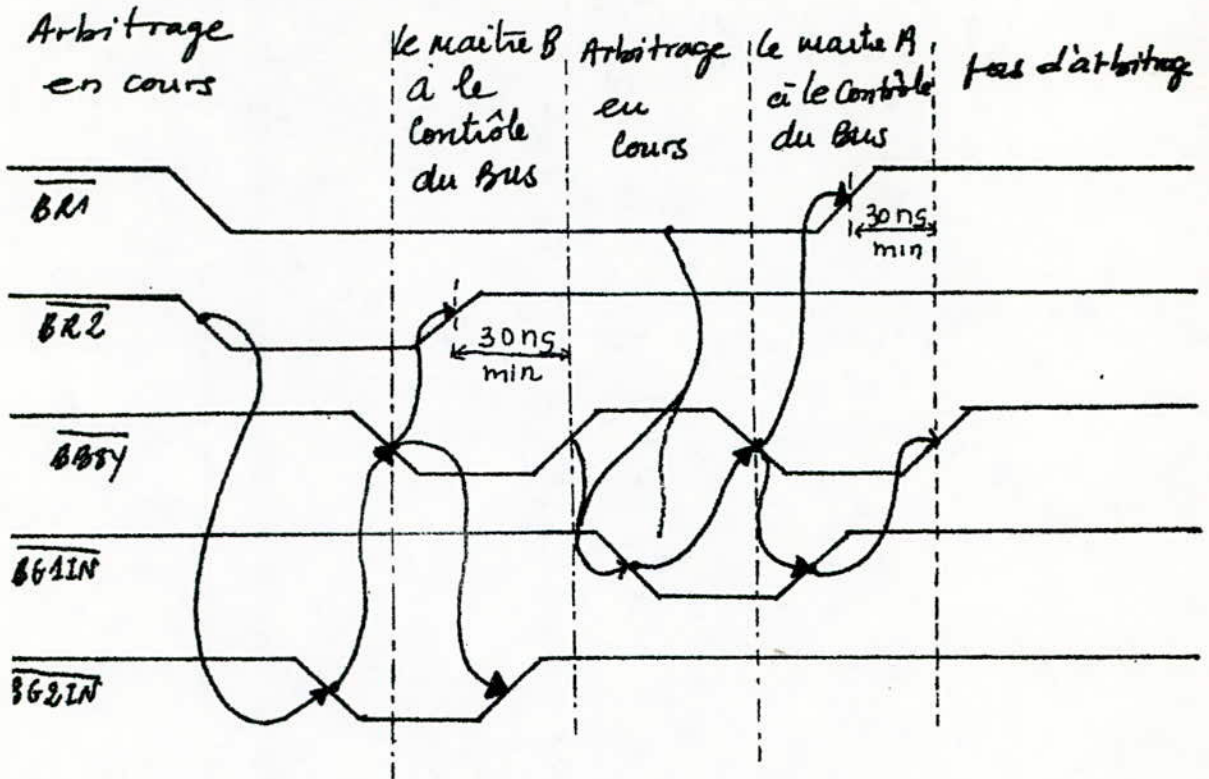 Arbitrage
en cours
le maitre B
à le
Contrôle
du Bus
Arbitrage
en
Cours
Le maitre A
à le Contrôle
du Bus
pas d'arbitrage
BR1
30ns
min
BR2
30ns
min
BBSY
BG1IN
BG2IN